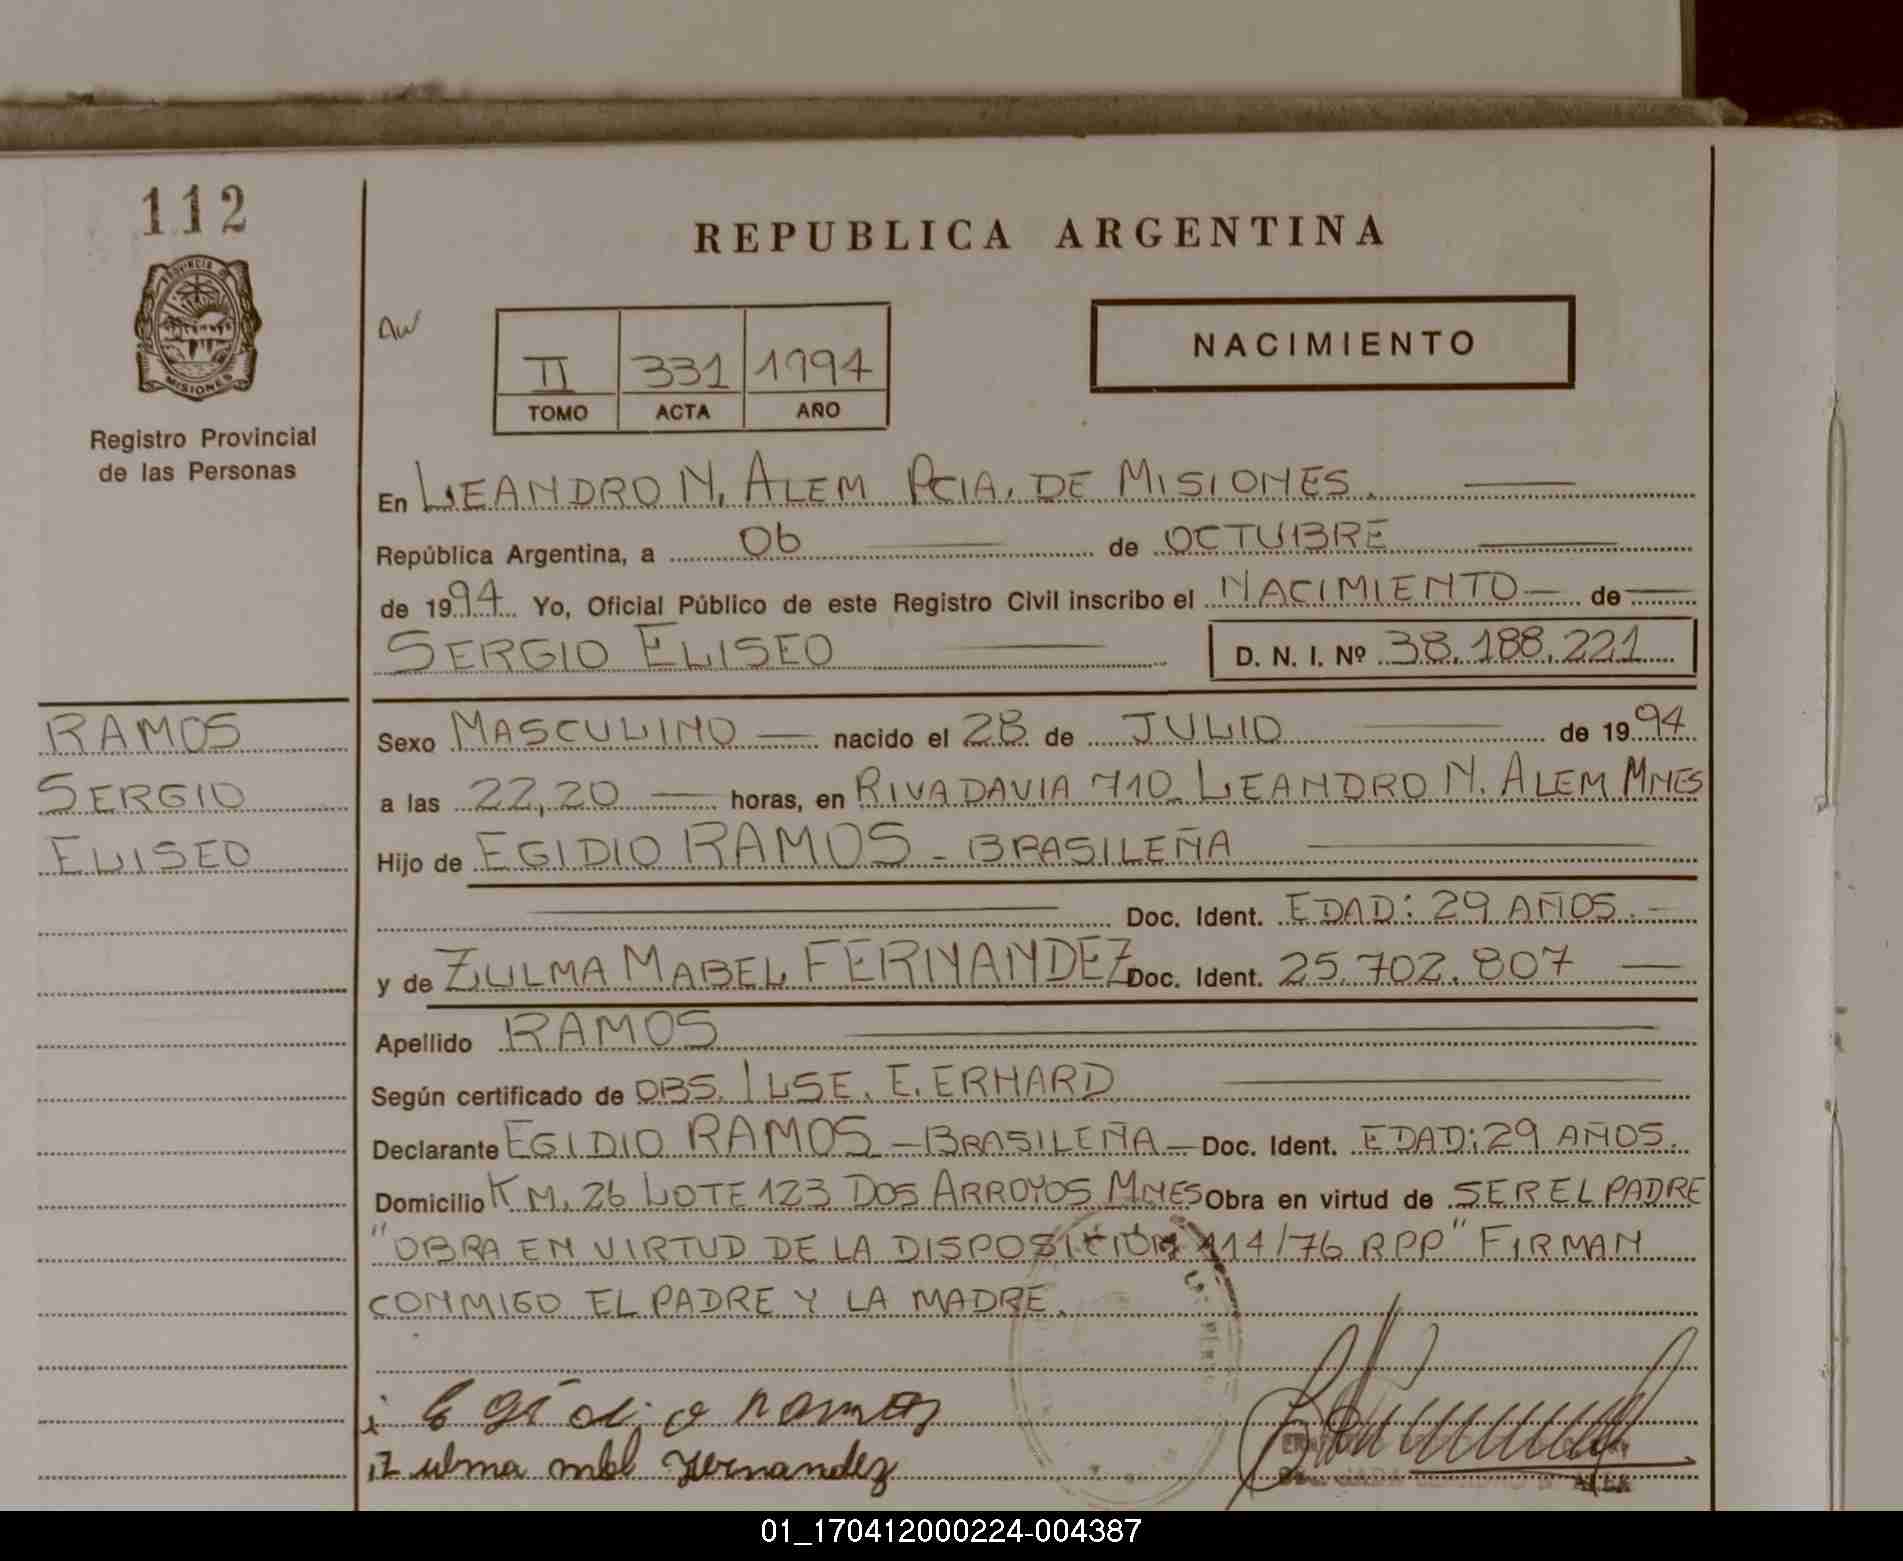 112
PROVINCIA DE
MISIONES
Registro Provincial
de las Personas
REPUBLICA ARGENTINA
II 331 1994
TOMO ACTA AÑO
NACIMIENTO
En LEANDRO N. ALEM PCIA. DE MISIONES.
República Argentina, a 06 de OCTUBRE
de 1994 Yo, Oficial Público de este Registro Civil inscribo el NACIMIENTO de
SERGIO ELISEO D. N. I. Nº 38.188.221
RAMOS
SERGIO
ELISEO
Sexo MASCULINO nacido el 28 de JULIO de 1994
a las 22,20 horas, en RIVADAVIA 710 LEANDRO N. ALEM MNES
Hijo de EGIDIO RAMOS - BRASILEÑA
Doc. Ident. EDAD: 29 AÑOS.
y de ZULMA MABEL FERNANDEZ Doc. Ident. 25.702.807
Apellido RAMOS
Según certificado de OBS. ILSE. E. ERHARD
Declarante EGIDIO RAMOS - BRASILEÑA - Doc. Ident. EDAD: 29 AÑOS.
Domicilio KM. 26 LOTE 123 DOS ARROYOS MNES Obra en virtud de SER EL PADRE
"OBRA EN VIRTUD DE LA DISPOSICION 114/76 RPP" FIRMAN
CONMIGO EL PADRE Y LA MADRE.
Egidio Ramos
Zulma mbl Fernandez
01_170412000224-004387